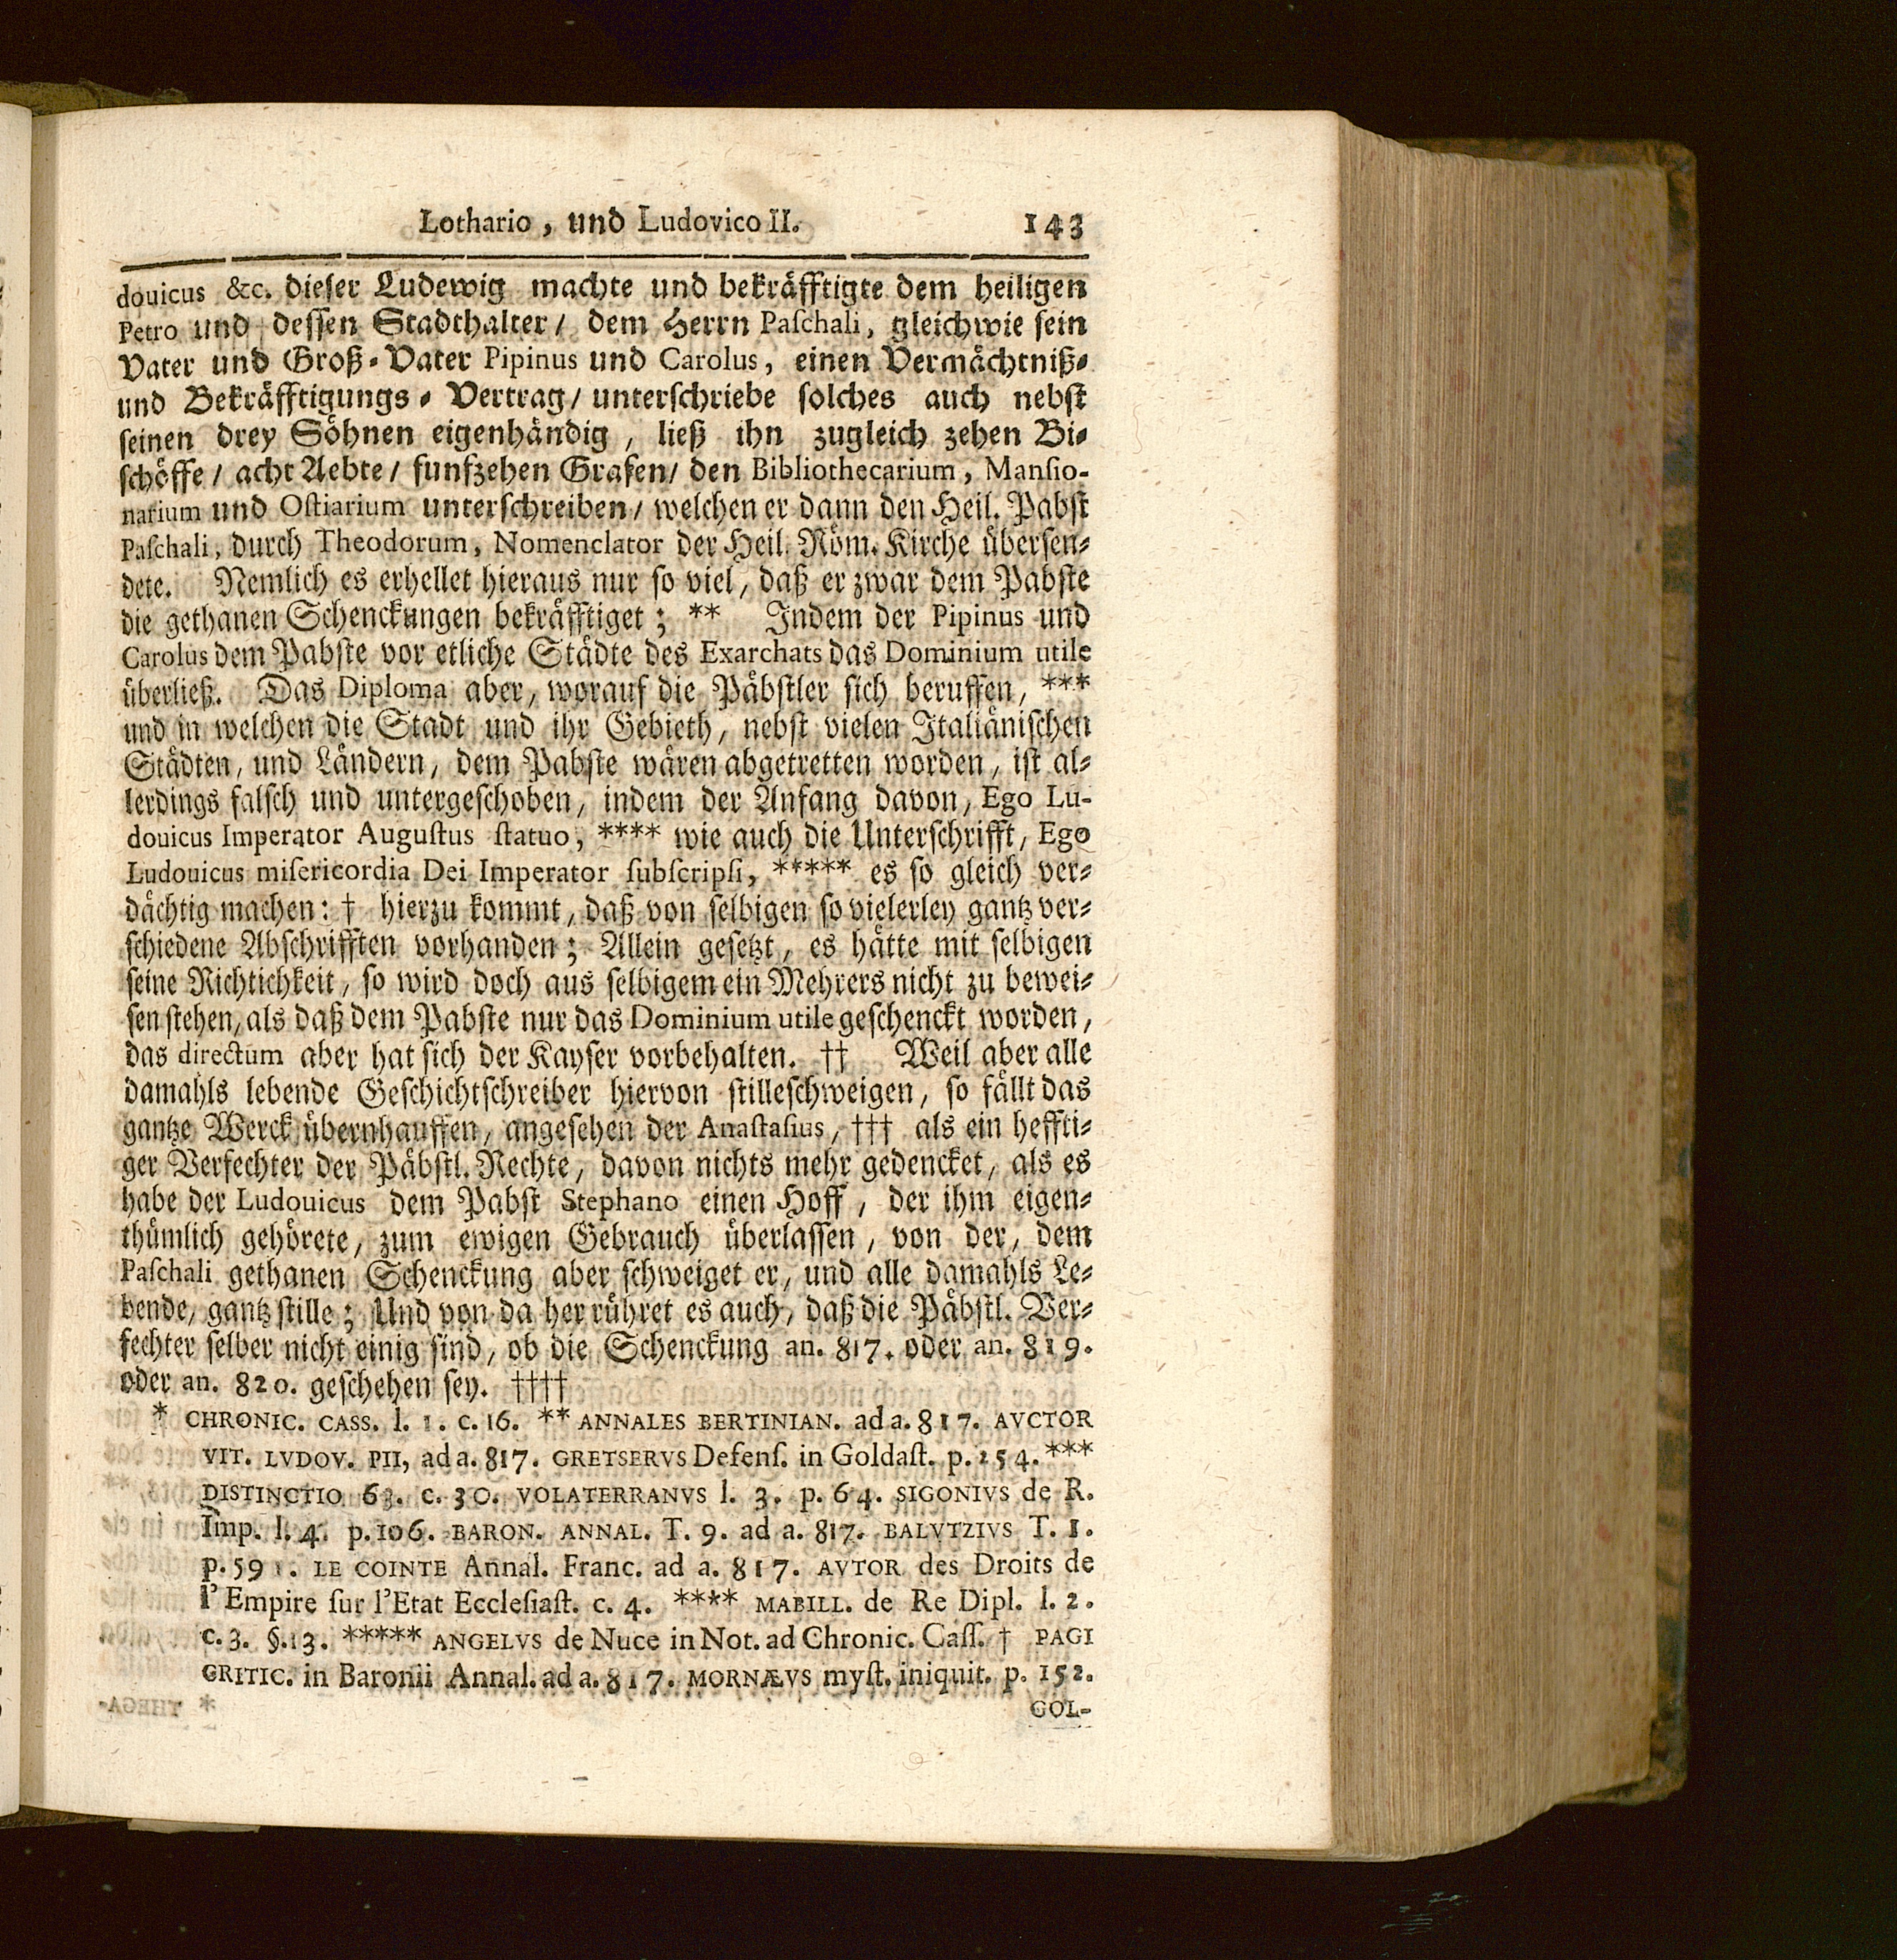 Lothario, und Ludovico II. 143
douicus &c. dieser Ludewig machte und bekräfftigte dem heiligen
Petro und dessen Stadthalter/ dem Herrn Paſchali, gleichwie sein
Vater und Groß-Vater Pipinus und Carolus, einen Vermächtniß-
und Bekräfftigungs-Vertrag/ unterschriebe solches auch nebst
seinen drey Söhnen eigenhändig, ließ ihn zugleich zehen Bi-
schöffe/ acht Aebte/ funfzehen Grafen/ den Bibliothecarium, Manſio-
narium und Oſtiarium unterschreiben/ welchen er dann den Heil. Pabst
Paſchali, durch Theodorum, Nomenclator der Heil. Röm. Kirche übersen-
dete. Nemlich es erhellet hieraus nur so viel, daß er zwar dem Pabste
die gethanen Schenckungen bekräfftiget; ** Indem der Pipinus und
Carolus dem Pabste vor etliche Städte des Exarchats das Dominium utile
überließ. Das Diploma aber, worauf die Päbstler sich beruffen, ***
und in welchen die Stadt und ihr Gebieth, nebst vielen Italiänischen
Städten, und Ländern, dem Pabste wären abgetretten worden, ist al-
lerdings falsch und untergeschoben, indem der Anfang davon, Ego Lu-
douicus Imperator Auguſtus ſtatuo, **** wie auch die Unterschrifft, Ego
Ludouicus miſericordia Dei Imperator ſubſcripſi, ***** es so gleich ver-
dächtig machen: † hierzu kommt, daß von selbigen so vielerley gantz ver-
schiedene Abschrifften vorhanden; Allein gesetzt, es hätte mit selbigen
seine Richtichkeit, so wird doch aus selbigem ein Mehrers nicht zu bewei-
sen stehen, als daß dem Pabste nur das Dominium utile geschenckt worden,
das directum aber hat sich der Kayser vorbehalten. †† Weil aber alle
damahls lebende Geschichtschreiber hiervon stilleschweigen, so fällt das
gantze Werck übernhauffen, angesehen der Anaſtaſius, ††† als ein heffti-
ger Verfechter der Päbstl. Rechte, davon nichts mehr gedencket, als es
habe der Ludouicus dem Pabst Stephano einen Hoff, der ihm eigen-
thümlich gehörete, zum ewigen Gebrauch überlassen, von der, dem
Paſchali gethanen Schenckung aber schweiget er, und alle damahls Le-
bende, gantz stille; Und von da her rühret es auch, daß die Päbstl. Ver-
fechter selber nicht einig sind, ob die Schenckung an. 817. oder an. 819.
oder an. 820. geschehen sey. ††††
* CHRONIC. CASS. l. 1. c. 16. ** ANNALES BERTINIAN. ad a. 817. AVCTOR
VIT. LVDOV. PII, ad a. 817. GRETSERVS Defenſ. in Goldaſt. p. 254. ***
DISTINCTIO 63. c. 30. VOLATERRANVS l. 3. p. 64. SIGONIVS de R.
Imp. l. 4. p. 106. BARON. ANNAL. T. 9. ad a. 817. BALVTZIVS T. 1.
p. 591. LE COINTE Annal. Franc. ad a. 817. AVTOR des Droits de
l'Empire ſur l'Etat Eccleſiaſt. c. 4. **** MABILL. de Re Dipl. l. 2.
c. 3. §. 13. ***** ANGELVS de Nuce in Not. ad Chronic. Caſſ. † PAGI
CRITIC. in Baronii Annal. ad a. 817. MORNÆVS myſt. iniquit. p. 152.
GOL-